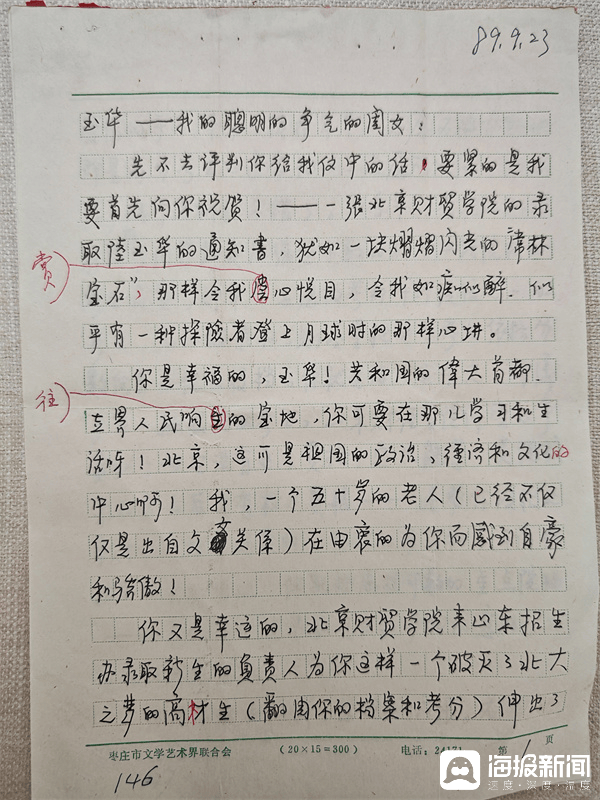 89.9.23
玉华——我的聪明的争气的闺女:
先不去评判你给我仪中的话,要紧的是我
要首先向你祝贺!——一张北京财贸学院的录
取陸玉华的通知書,犹如一块熠熠闪光的津林
赏
宝石",那样令我赏心悦目,令我如痴如醉.似
乎有一种探險者登上月球时的那样心境。
你是幸福的,玉华!共和国的偉大首都.
往
世界人民响往的宝地,你可要在那儿学习和生
活呀!北京,这可是祖国的政治、经济和文化的
中心啊!我,一个五十岁的老人(已经不仅
仅是出自父女关係)在由衷的为你而感到自豪
和骄傲!
你又是幸运的,北京财贸学院来山东招生
办录取新生的負责人为你这样一个破灭了北大
之梦的高材生(翻阅你的档案和考分)伸出了
枣庄市文学艺术界联合会 (20×15=300) 电话:24171 第 1 页
146
海报新闻
速度·深度·温度